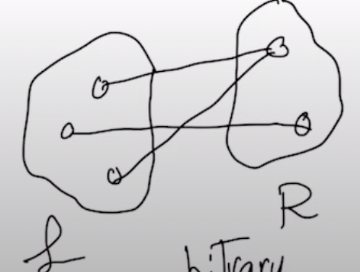 L
R
bitrary